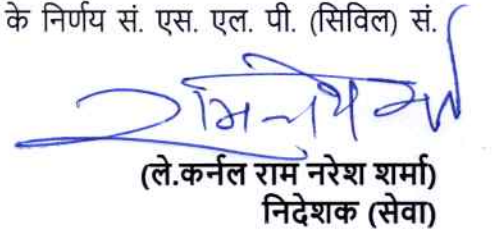 के निर्णय सं. एस. एल. पी. (सिविल) सं.
(ले.कर्नल राम नरेश शर्मा)
निदेशक (सेवा)